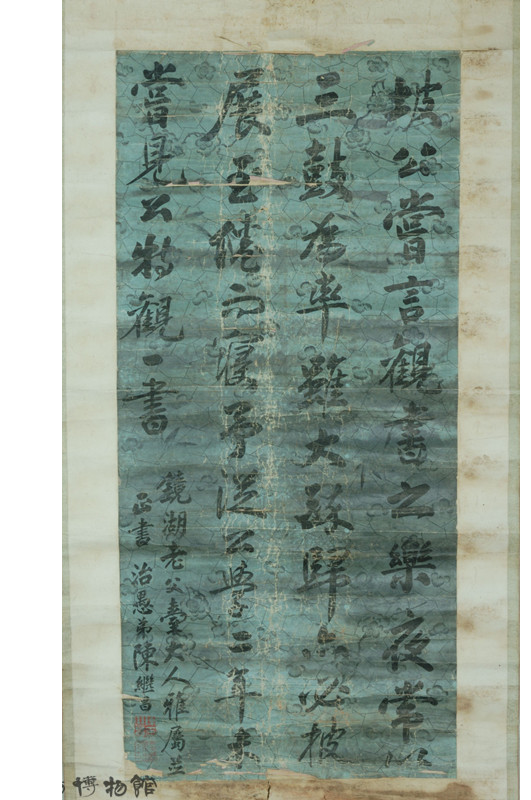 坡公嘗言觀書之樂夜常以
三鼓為率雖大醉歸亦必披
展至倦而寢予從公學二年未
嘗見公特觀一書
鏡湖老父臺大人雅屬並
正書 治愚弟陳繼昌
博物館